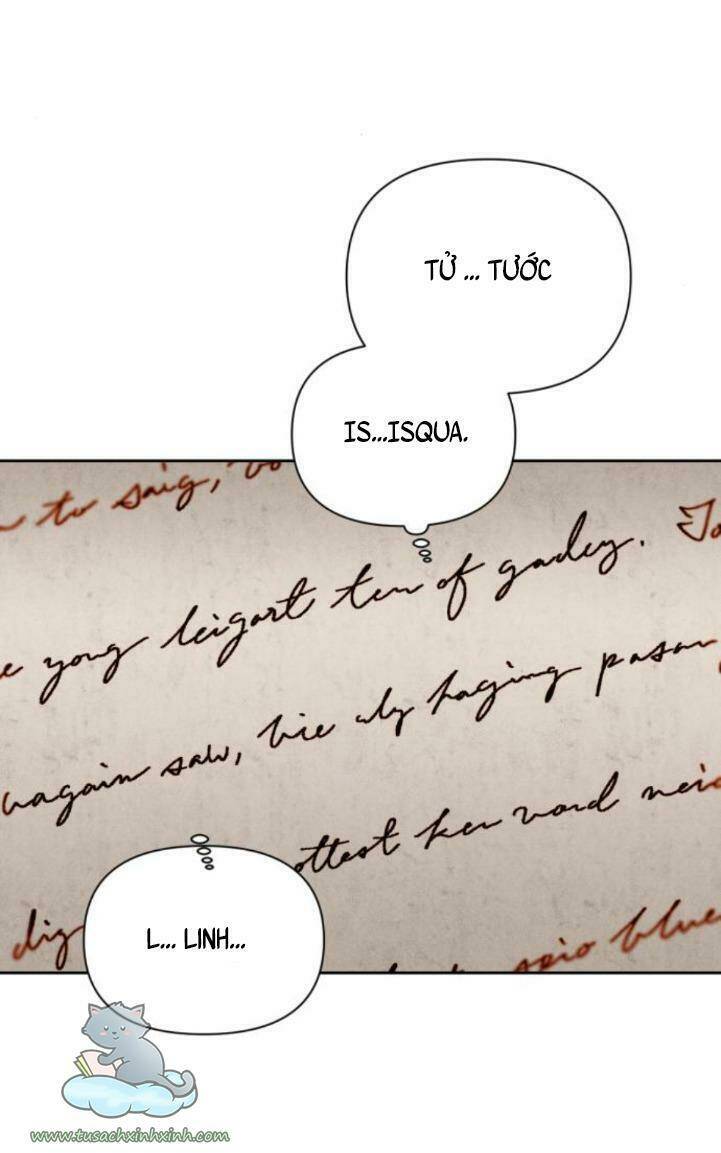 TỬ ... TƯỚC
IS...ISQUA.
to saig,
yong leigart ten of gadey.
wagain saw, hie aly haging pasar
ottest ken word neig
dig
L... LINH...
seio blue
www.tusachxinhxinh.com